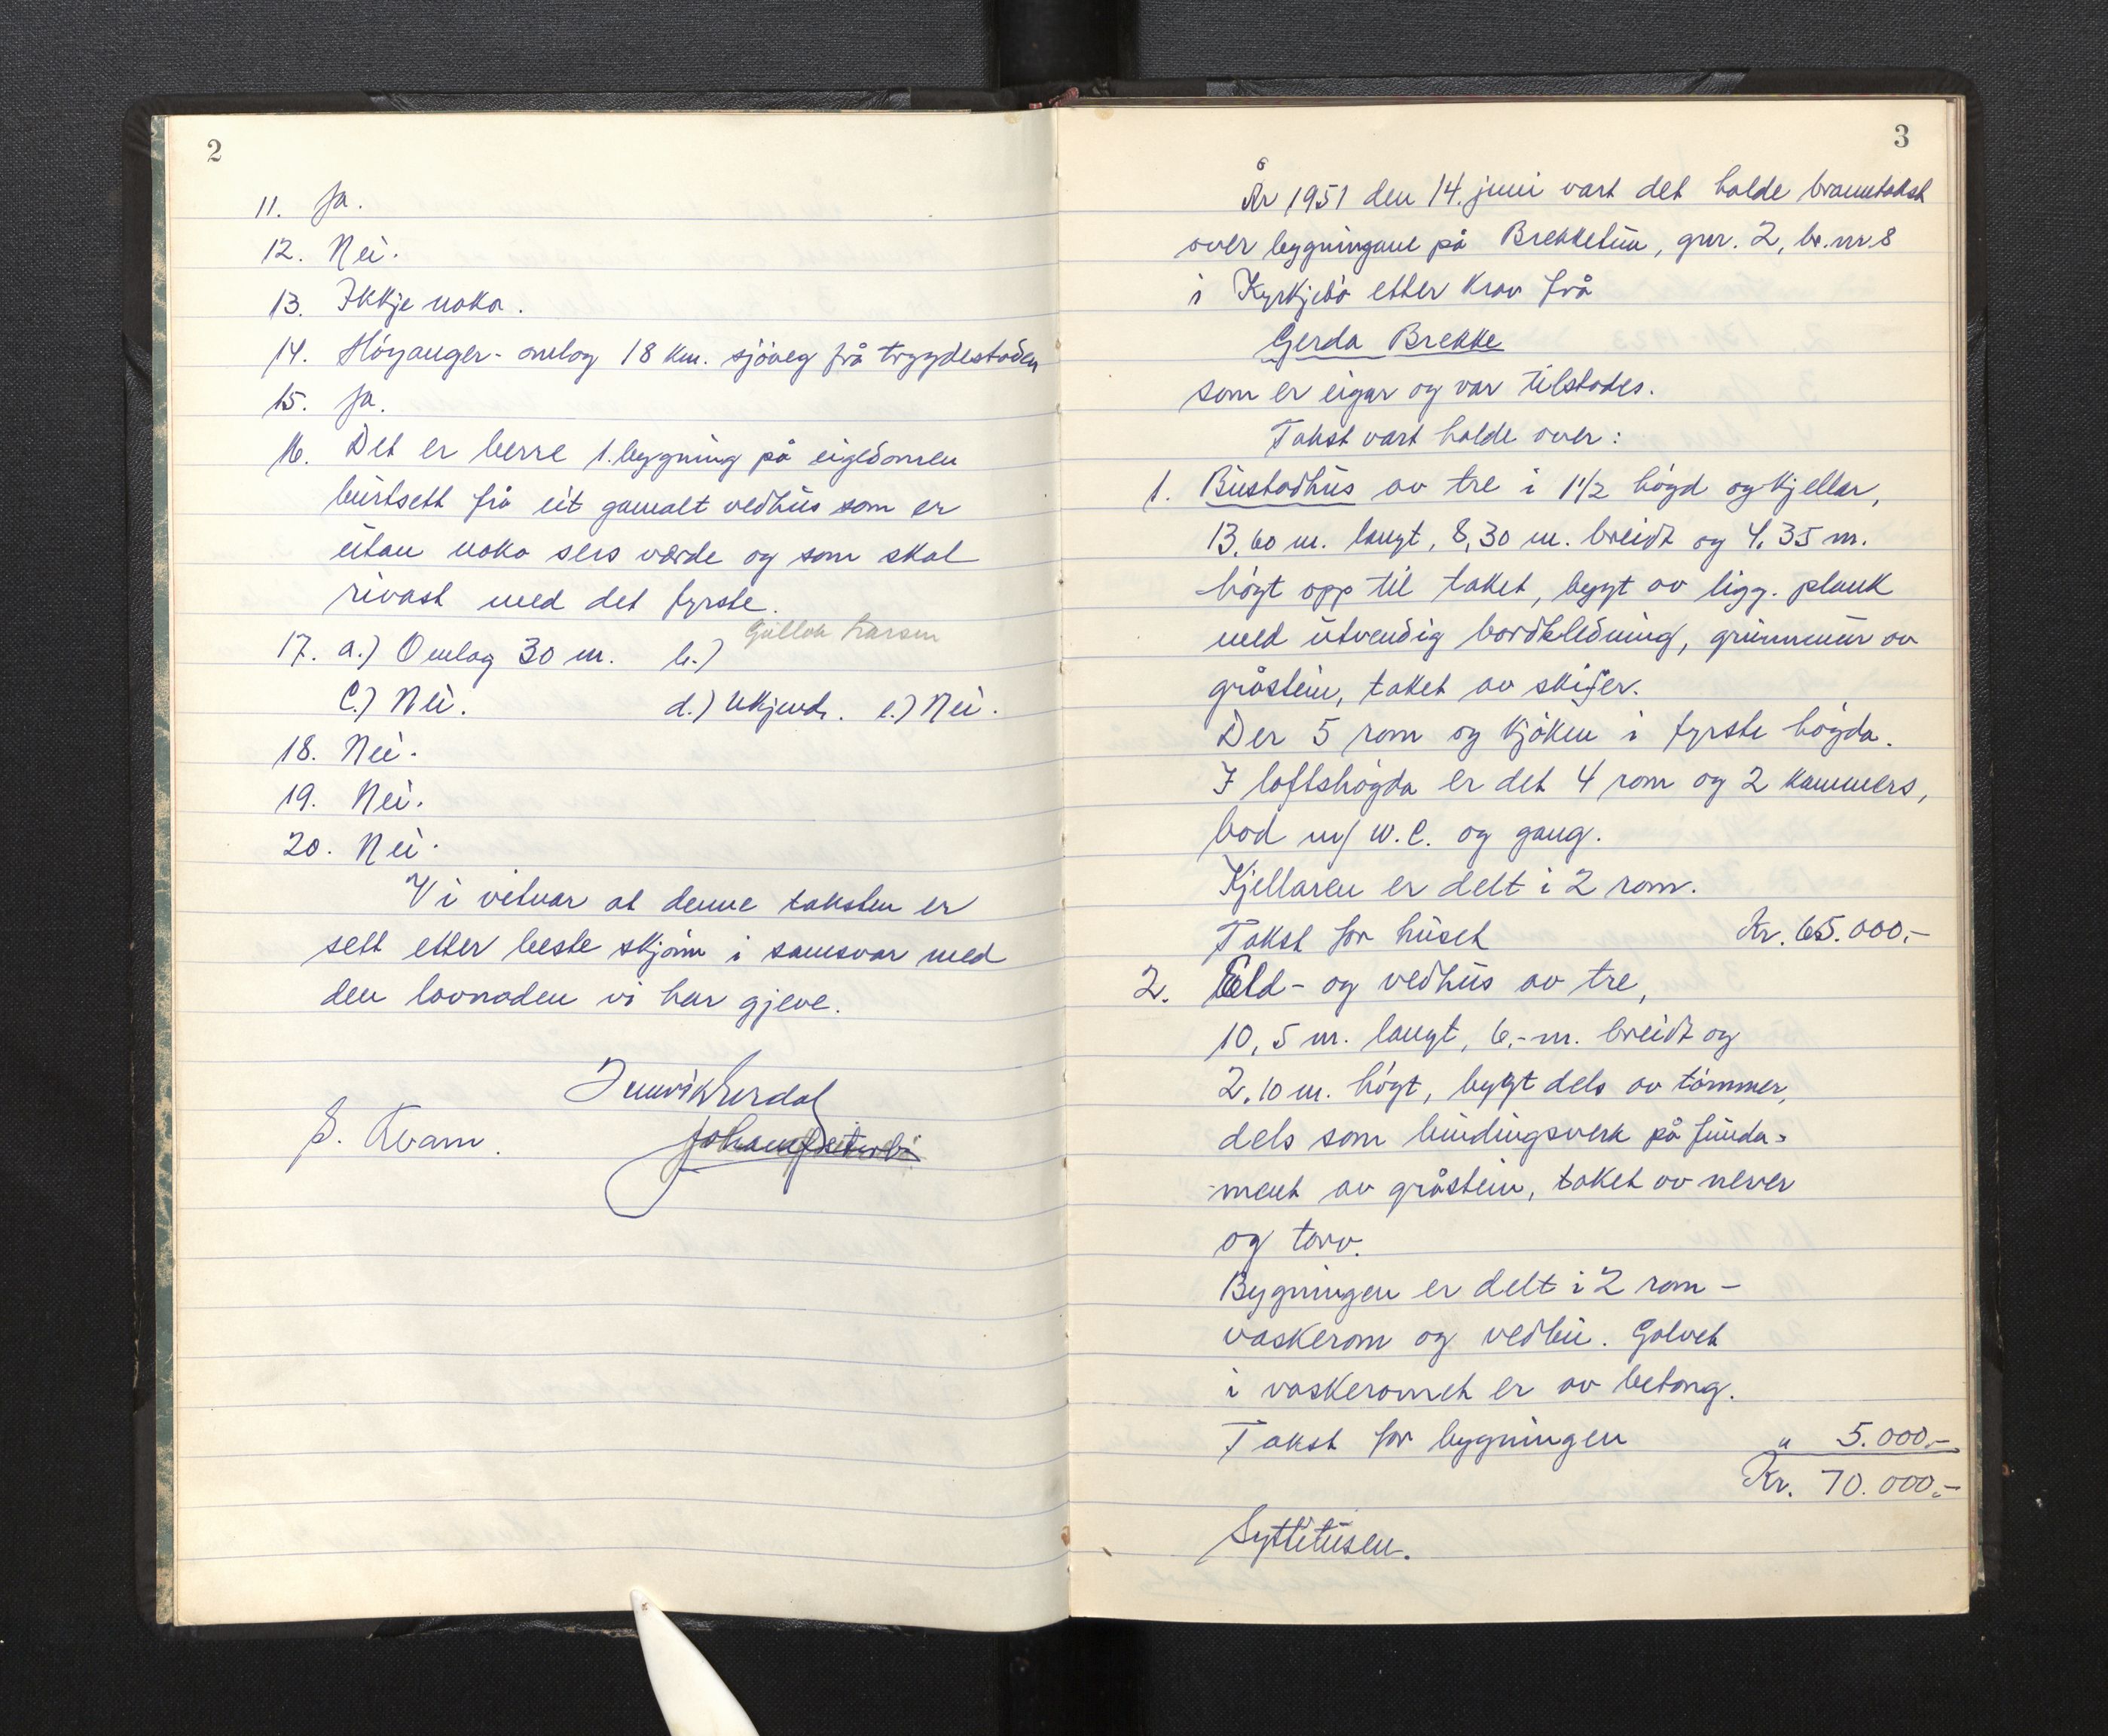 2
11. Ja.
12. Nei.
13. Ikkje noko.
14. Höyanger - omlag 18 km. sjöveg frå trygdestaden
15. Ja.
16. Det er berre 1. bygning på eigedomen
burtsett frå eit gamalt vedhus som er
utan noko sers verde og som skal
rivast med det fyrste.
17. a.) Omlag 30 m. b.) Larsen
c.) Nei. d.) Ukjend. e.) Nei.
18. Nei.
19. Nei.
20. Nei.
Vi vitnar at denne taksten er
sett etter beste skjönn i samsvar med
den lovnaden vi har gjeve.
S. Kvam.
3
År 1951 den 14. juni vart det halde branntakst
over bygningane på Brekketun, gnr. 2, br. nr 8
i Kyrkjebö etter krav frå
Gerda Brekke
som er eigar og var tilstades.
Takst vart halde over:
1. Bustadhus av tre i 1 1/2 högd og kjellar,
13.60 m. langt, 8,30 m. breidt og 4.35 m.
högt opp til taket, bygt av ligg. plank
med utvendig bordkledning, grunnmur av
gråstein, taket av skifer.
Der 5 rom og kjöken i fyrste högda.
I loftshögda er det 4 rom og 2 kammers,
bod m/ W.C. og gang.
Kjellaren er delt i 2 rom.
Takst for huset Kr. 65.000,-
2. Eld- og vedhus av tre,
10,5 m. langt, 6,- m. breidt og
2.10 m. högt, bygt dels av tömmer,
dels som bindingsverk på funda-
ment av gråstein, taket av never
og torv.
Bygningen er delt i 2 rom -
vaskerom og vedbu. Golvet
i vaskeromet er av betong.
Takst for bygningen " 5.000,-
Kr. 70.000,-
Syttitusen.